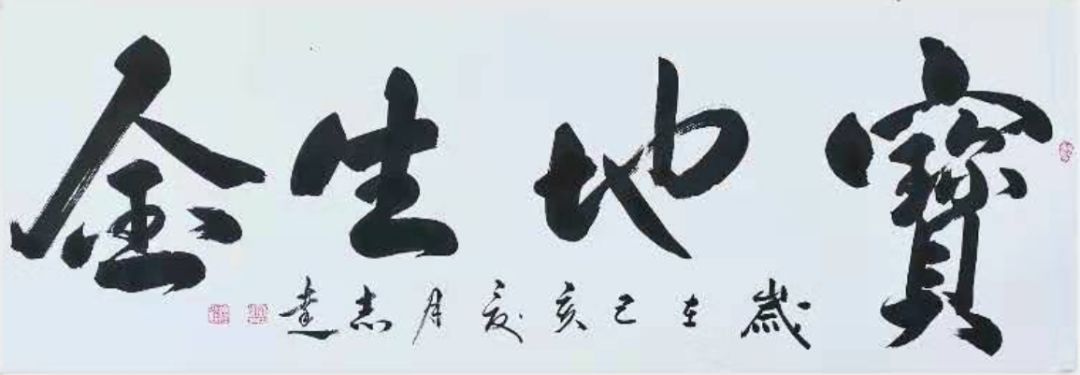 寶地生金
歲在己亥夏月志達